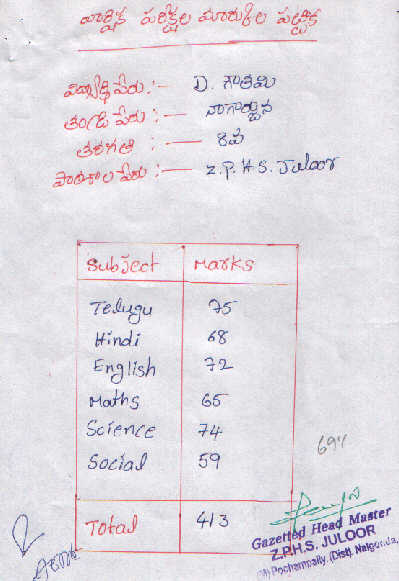 వార్షిక పరీక్షల మార్కుల పట్టిక
విద్యార్థి పేరు :- D. గౌతమి
తండ్రి పేరు :- నాగార్జున
తరగతి :- 8వ
పాఠశాల పేరు :- Z.P.H.S. Juloor
Subject Marks
Telugu 75
Hindi 68
English 72
Maths 65
Science 74
Social 59
69%
Total 413
Gazetted Head Master
Z.P.H.S. JULOOR
(M) Pochampally, (Dist). Nalgonda.